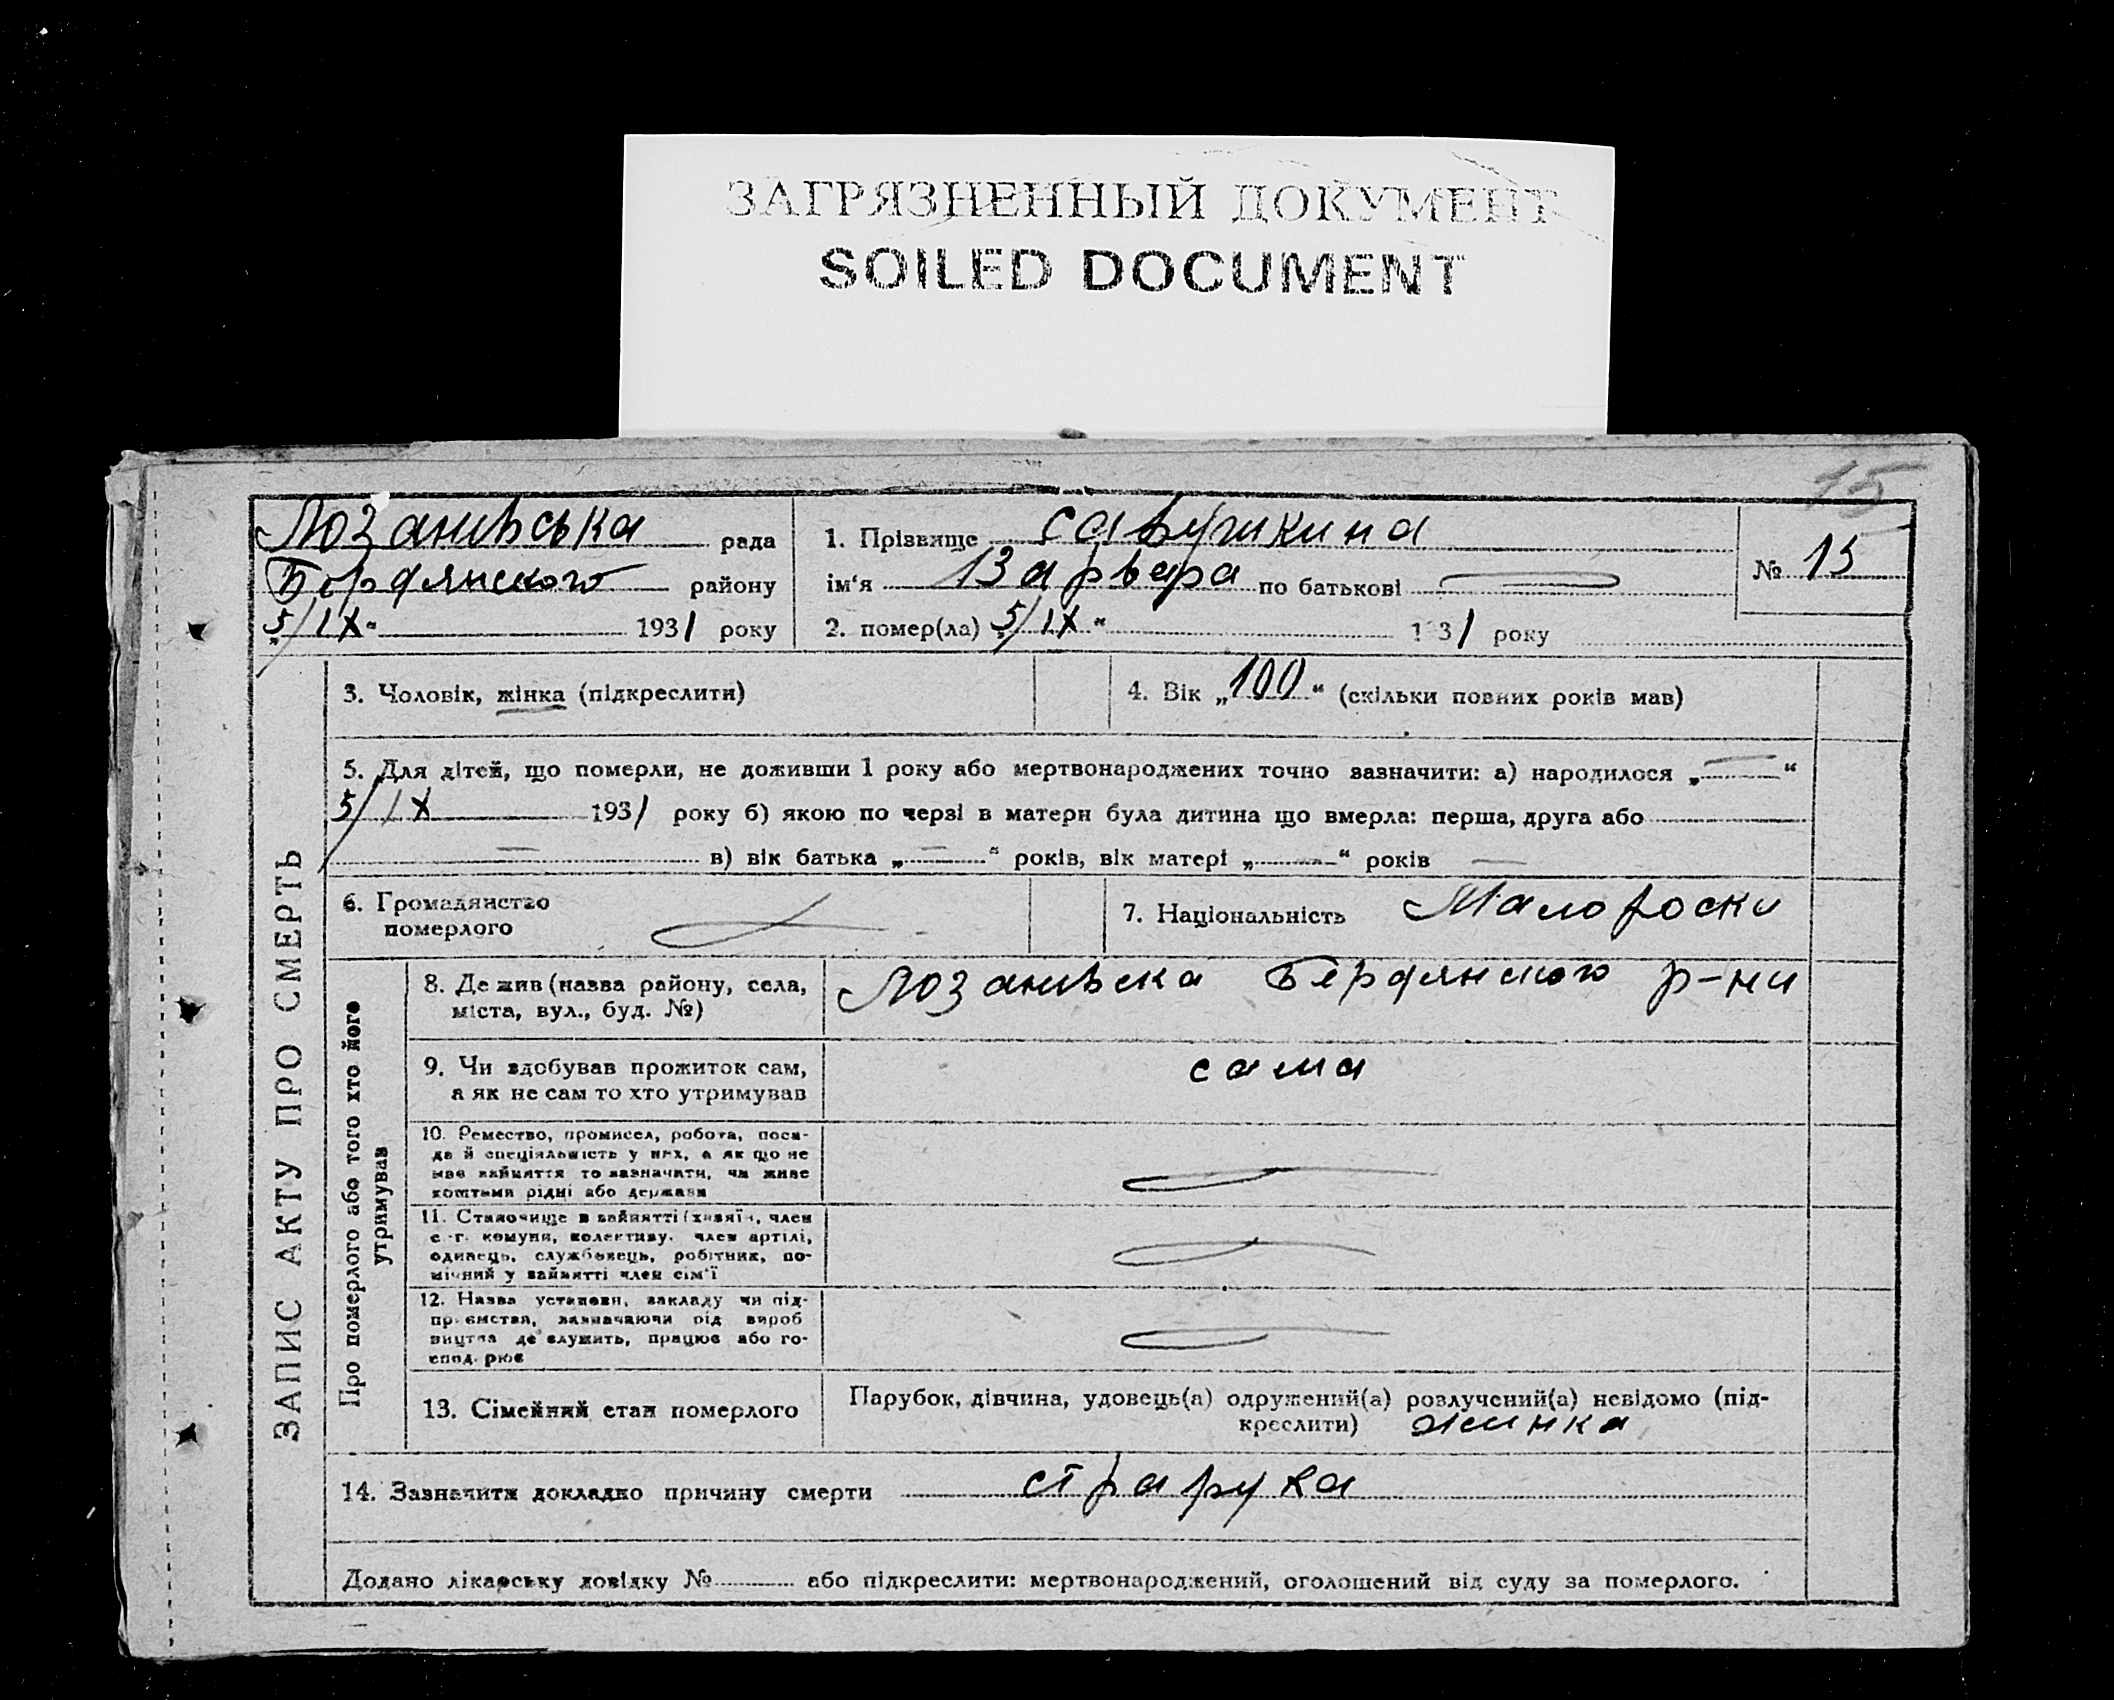 ЗАГРЯЗНЕННЫЙ ДОКУМЕНТ
SOILED DOCUMENT
15
Лозанивська рада
Бердянского району
„5/IX“ 1931 року
1. Прізвище Савушкина
ім‘я Варвара по батькові
2. помер(ла) „5/IX“ 1931 року
№ 15
ЗАПИС АКТУ ПРО СМЕРТЬ
3. Чоловік, жінка (підкреслити)
4. Вік „100“ (скільки повних років мав)
5. Для дітей, що померли, не доживши 1 року або мертвонароджених точно зазначити: а) народилося „—“
5/IX 1931 року б) якою по черзі в матери була дитина що вмерла: перша, друга або
— в) вік батька „—“ років, вік матері „—“ років —
6. Громадянство
померлого
7. Національність Малороски
Про померлого або того хто його
утримував
8. Де жив (назва району, села,
міста, вул., буд. №)
Лозанивска Бердянского р-ни
9. Чи здобував прожиток сам,
а як не сам то хто утримував
сама
10. Ремество, промисел, робота, поса-
да й спеціяльність у них, а як що не
мав займяття то зазначити, чи живе
коштами рідні або держави
11. Становище в займятті (хазяїн, член
с.-г. комуни, колективу, член артілі,
одинець, службовець, робітник, по-
мічний у займятті член сім‘ї
12. Назва установи, закладу чи під-
приємства, зазначаючи рід вироб
ництва де служить, працює або го-
спод. рює
13. Сімейний стан померлого
Парубок, дівчина, удовець(а) одружений(а) розлучений(а) невідомо (під-
креслити) жинка
14. Зазначити докладно причину смерти старуха
Додано лікарську довідку № або підкреслити: мертвонароджений, оголошений від суду за померлого.